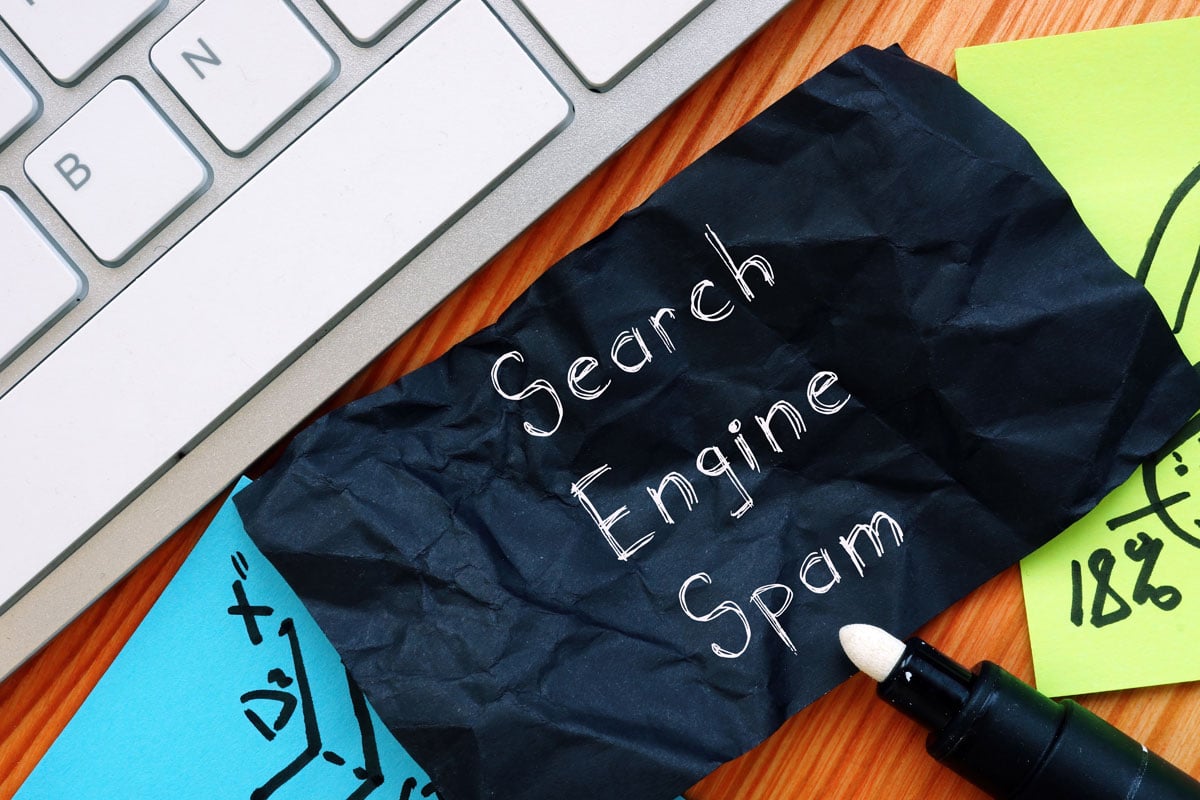 N
B
Search
Engine
Spam
18%